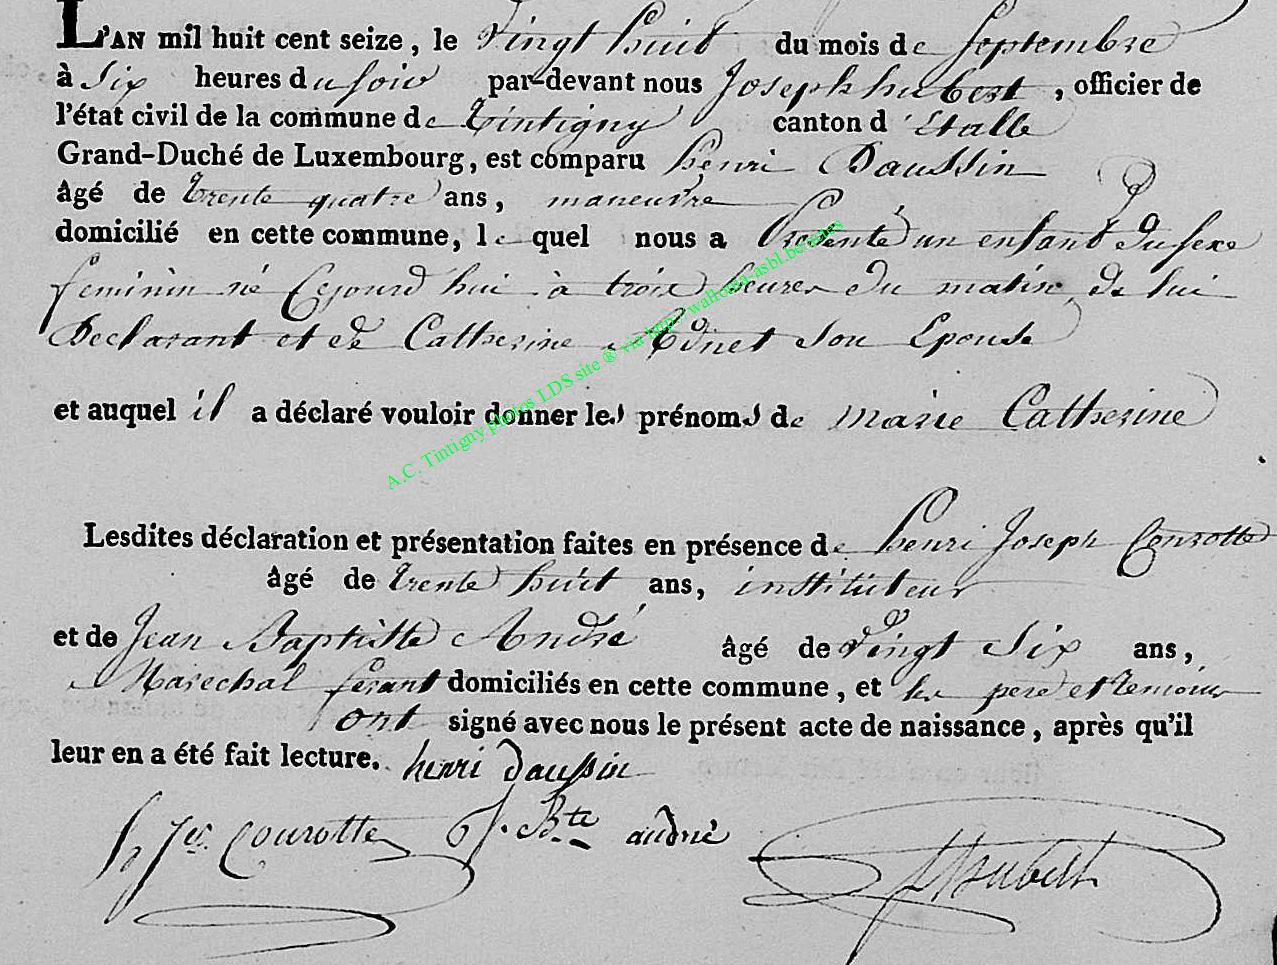 L'AN mil huit cent seize, le vingt huit du mois de septembre
à Six heures du soir par-devant nous Joseph hubert, officier de
l'état civil de la commune de Tintigny canton d'Etalle
Grand-Duché de Luxembourg, est comparu henri Daussin
âgé de trente quatre ans, maneuvre
domicilié en cette commune, le quel nous a Présenté un enfant du sexe
feminin né Cejourd'hui à trois heures du matin de lui
Declarant et de Catherine son Epouse
et auquel il a déclaré vouloir donner les prénoms de marie Catherine
A.C. Tintigny photos LDS site ® via http:
Lesdites déclaration et présentation faites en présence de henri Joseph Conrotte
âgé de trente huit ans, instituteur
et de Jean Baptiste André âgé de vingt Six ans,
Marechal ferant domiciliés en cette commune, et les pere et temoins
ont signé avec nous le présent acte de naissance, après qu'il
leur en a été fait lecture. henri daussin
h Jh Conrotte J. Bte andrié
JHubert